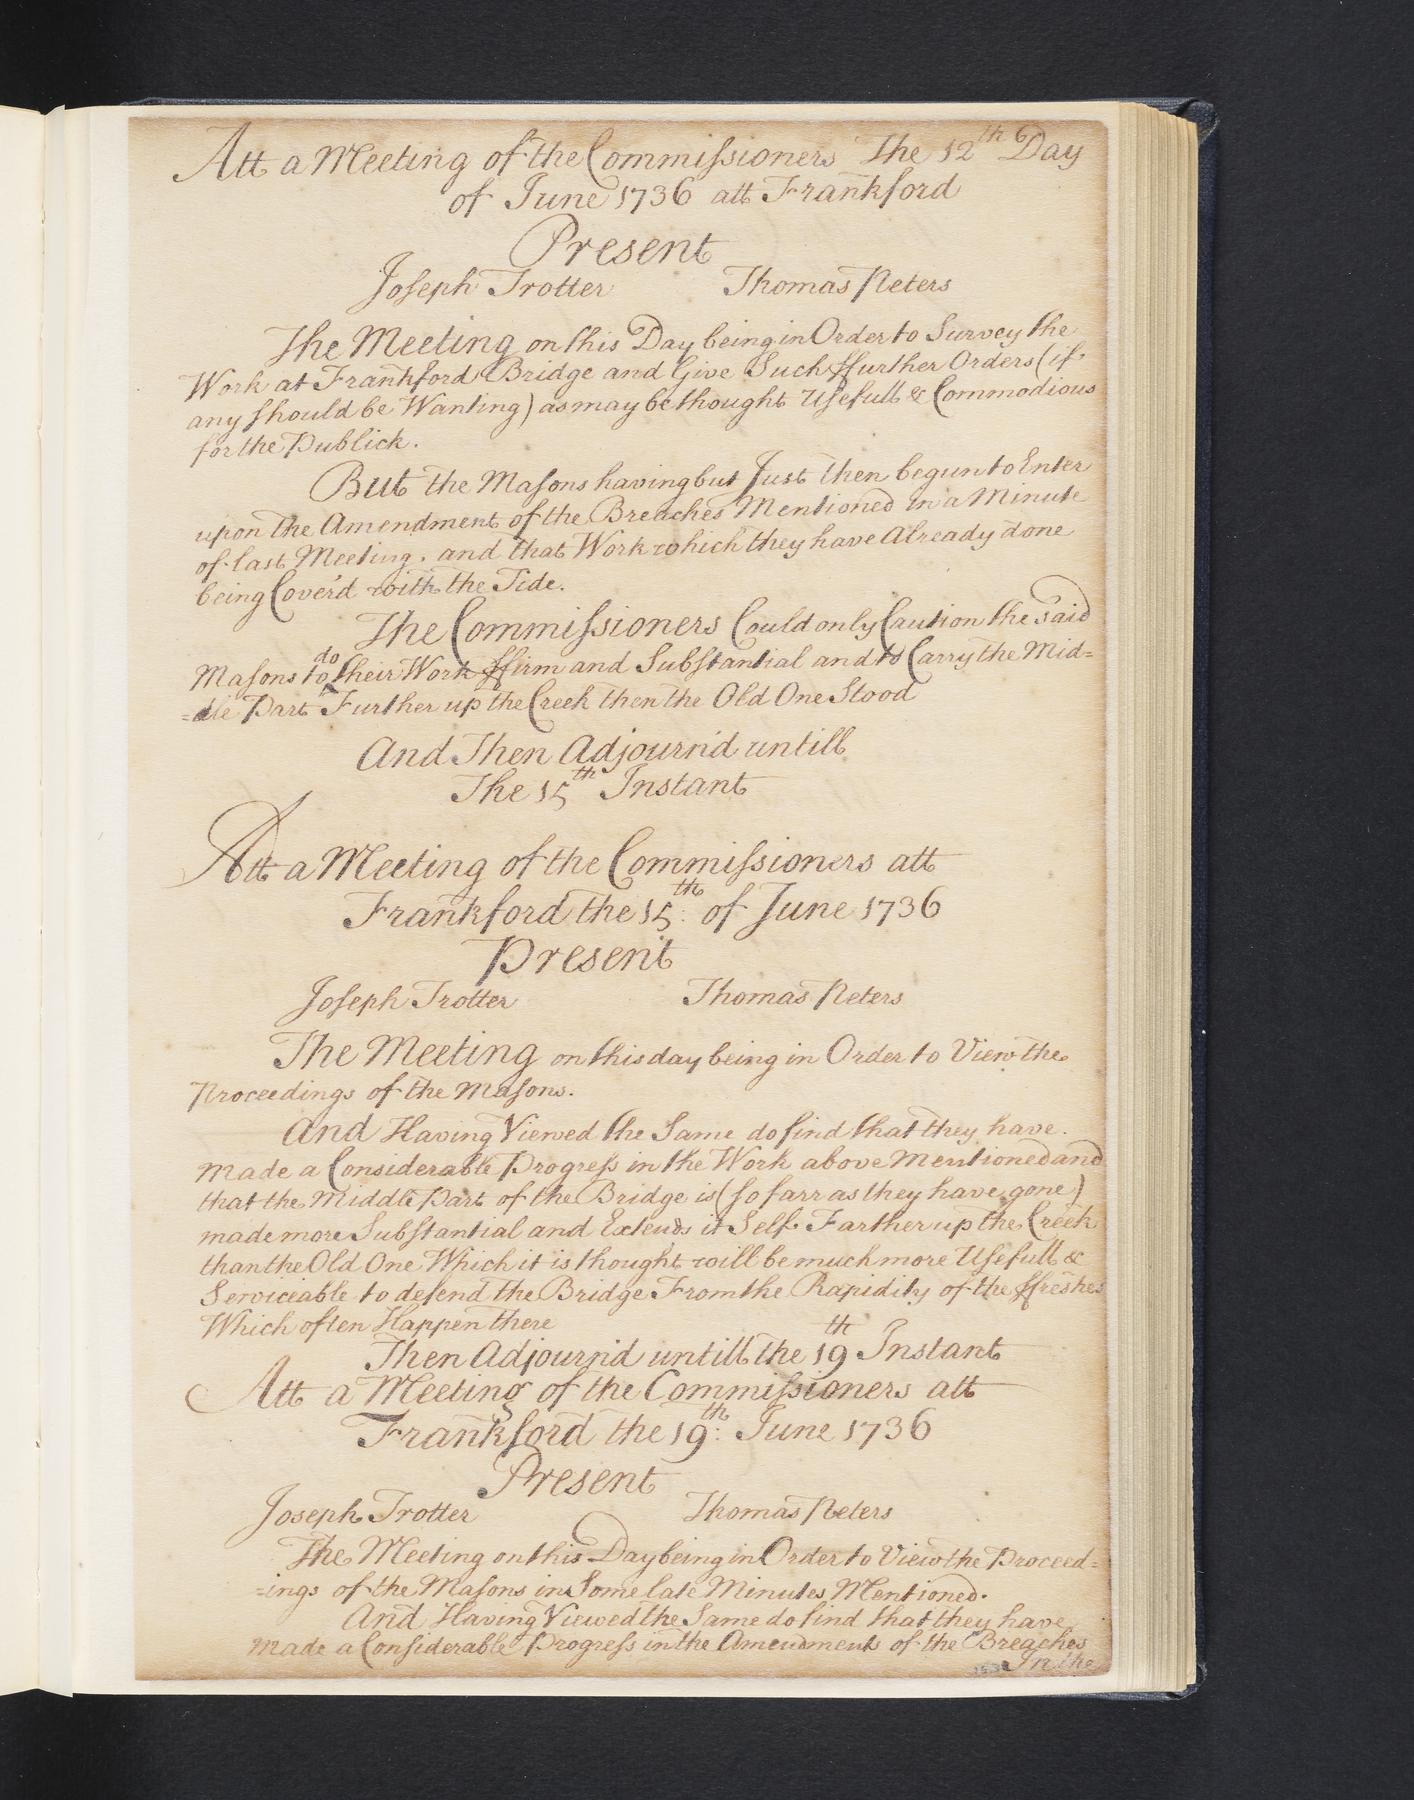 Att a Meeting of the Commissioners The 12th Day
of June 1736 att Frankford
Present
Joseph Trotter Thomas Peters
The Meeting on this Day being in Order to Survey the
Work at Frankford Bridge and Give Such ffurther Orders (if
any should be Wanting) as may be thought Usefull & Commodious
for the Publick.
But the Masons having but Just then begun to Enter
upon the Amendment of the Breaches Mentioned in a Minute
of last Meeting. and that Work which they have Already done
being Cover'd with the Tide.
The Commissioners Could only Caution the said
do
Masons to their Work ffirm and Substantial and to Carry the Mid=
=dle Part Further up the Creek then the Old One Stood
And Then Adjourn'd untill
The 15th Instant
Att a Meeting of the Commissioners att
Frankford the 15th: of June 1736
Present
Joseph Trotter Thomas Peters
The Meeting on this day being in Order to View the
Proceedings of the Masons.
And Having Viewed the Same do find that they have.
made a Considerable Progress in the Work above Mentioned and
that the Middle Part of the Bridge is (so farr as they have gone)
made more Substantial and Extends it Self Farther up the Creek
than the Old One Which it is thought will be much more Usefull &
Serviceable to defend the Bridge From the Rapidity of the ffreshes
Which often Happen there
Then Adjourn'd untill the 19th Instant
Att a Meeting of the Commissioners att
Frankford the 19th: June 1736
Present
Joseph Trotter Thomas Peters
The Meeting on this Day being in Order to View the Proceed=
=ings of the Masons in Some late Minutes Mentioned.
And Having Viewed the Same do find that they have
made a Considerable Progress in the Amendments of the Breaches
In the